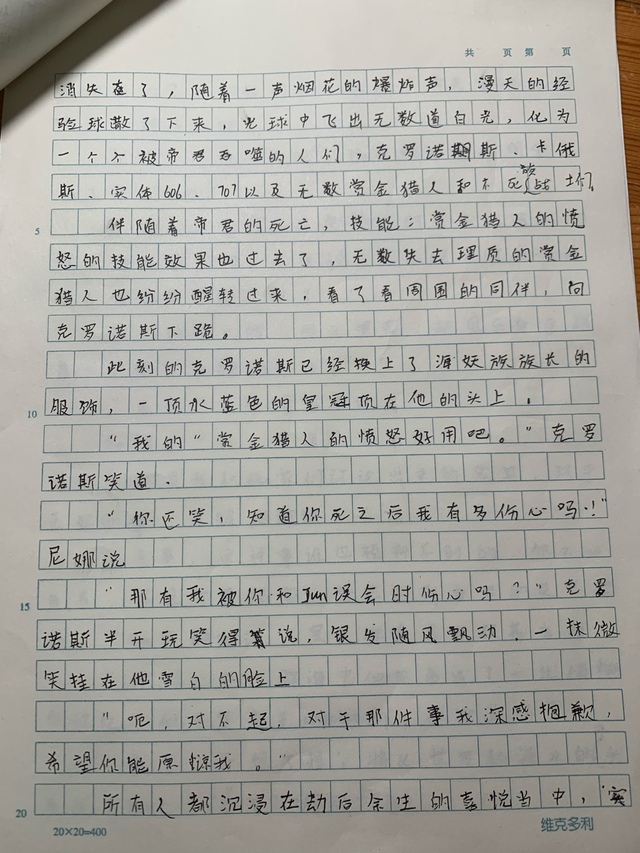 共 页 第 页
消失在了，随着一声烟花的爆炸声，漫天的经
验球散了下来，光球中飞出无数道白光，化为
一个个被帝君吞噬的人们，克罗诺斯、卡俄
斯、实体606、707以及无数赏金猎人和不死战士们
5 伴随着帝君的死亡，技能：赏金猎人的愤
怒的技能效果也过去了，无数失去理质的赏金
猎人也纷纷醒转过来，看了看周围的同伴，向
克罗诺斯下跪。
此刻的克罗诺斯已经换上了海妖族族长的
10 服饰，一顶水蓝色的皇冠顶在他的头上．
“我的“赏金猎人的愤怒好用吧。”克罗
诺斯笑道．
“你还笑，知道你死之后我有多伤心吗！”
尼娜说
15 “那有我被你和Jun误会时伤心吗？”克罗
诺斯半开玩笑得说，银发随风飘动．一抹微
笑挂在他雪白的脸上
“呃，对不起，对于那件事我深感抱歉，
希望你能原谅我。”
20 所有人都沉浸在劫后余生的喜悦当中，实
20×20=400 维克多利